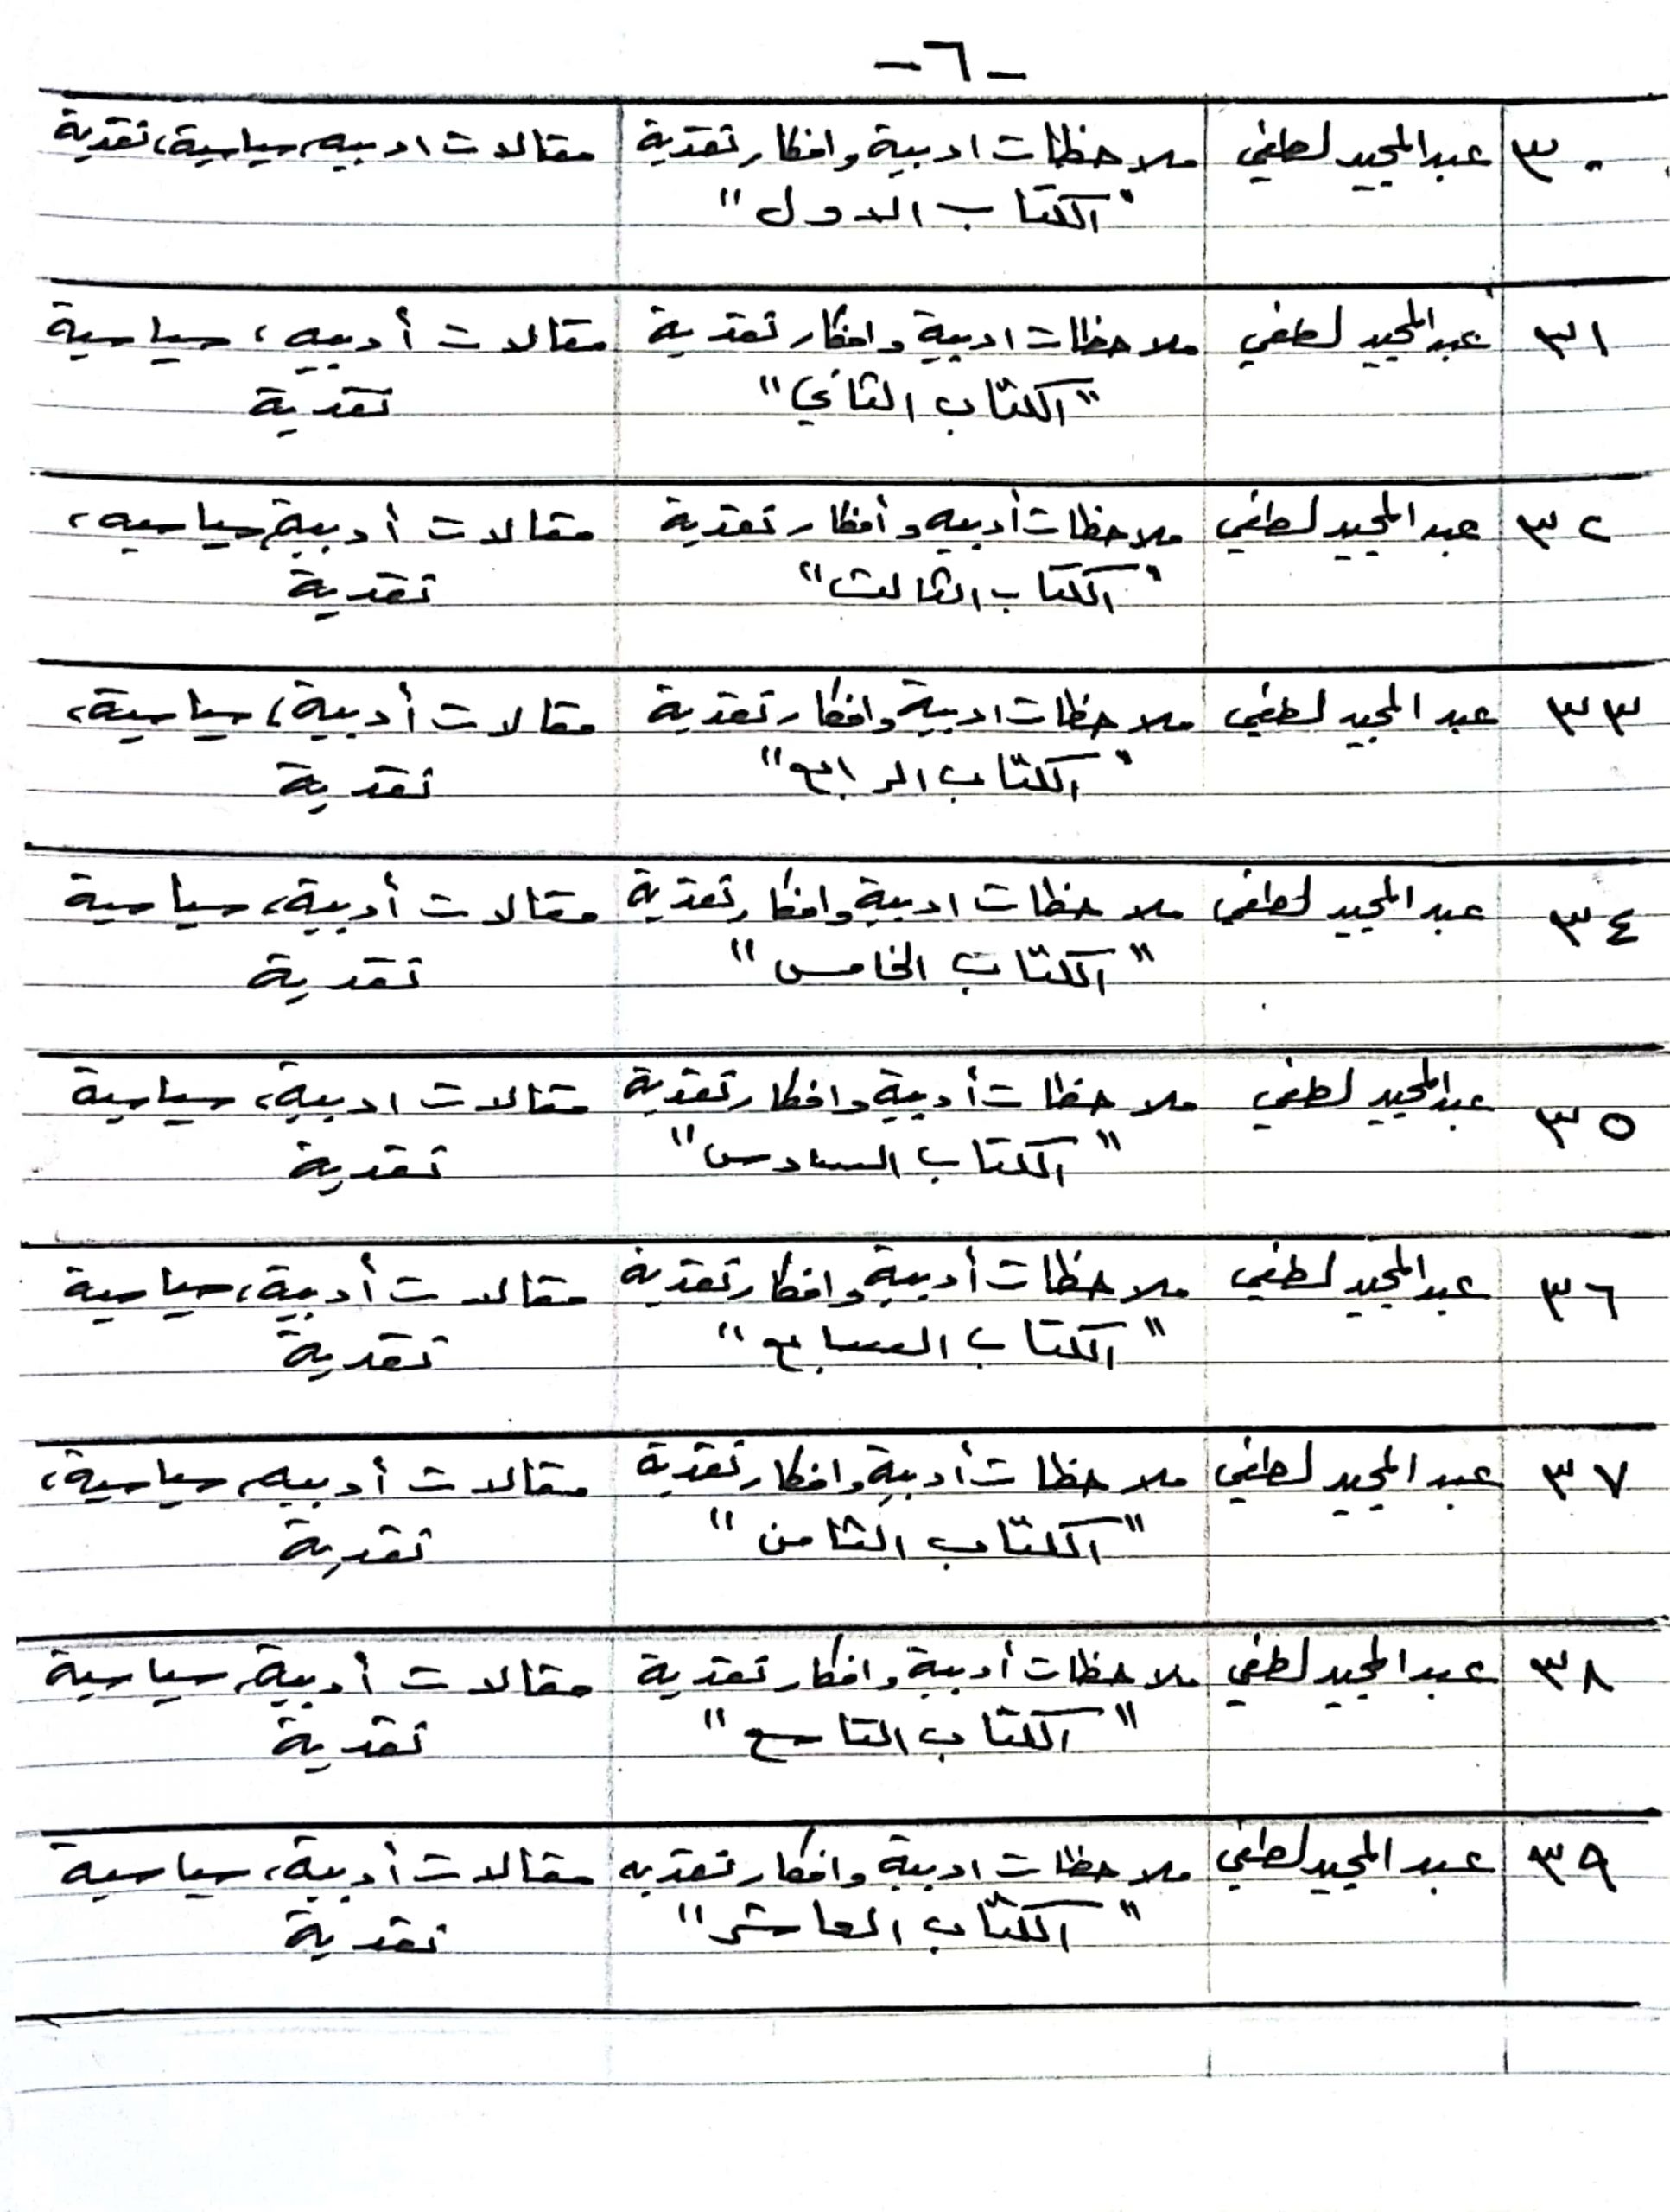 -٦-
٣٠ عبدالمجيد لطفي ملاحظات ادبية وافكار نقدية مقالات ادبيه، سياسية، نقدية
"الكتاب الاول"
٣١ عبدالمجيد لطفي ملاحظات ادبية وافكار نقدية مقالات أدبيه، سياسية
"الكتاب الثاني" نقدية
٣٢ عبد المجيد لطفي ملاحظات أدبيه وأفكار نقدية مقالات أدبية، سياسيه،
"الكتاب الثالث" نقدية
٣٣ عبد المجيد لطفي ملاحظات ادبية وافكار نقدية مقالات أدبية، سياسية،
"الكتاب الرابع" نقدية
٣٤ عبد المجيد لطفي ملاحظات ادبية وافكار نقدية مقالات أدبية، سياسية
"الكتاب الخامس" نقدية
٣٥ عبدالمجيد لطفي ملاحظات أدبية وافكار نقدية مقالات ادبية، سياسية
"الكتاب السادس" نقدية
٣٦ عبدالمجيد لطفي ملاحظات أدبية وافكار نقدية مقالات أدبية، سياسية
"الكتاب السابع" نقدية
٣٧ عبد المجيد لطفي ملاحظات أدبية وافكار نقدية مقالات أدبيه، سياسية،
"الكتاب الثامن" نقدية
٣٨ عبد المجيد لطفي ملاحظات أدبية وافكار نقدية مقالات أدبية، سياسية
"الكتاب التاسع" نقدية
٣٩ عبد المجيد لطفي ملاحظات ادبية وافكار نقديه مقالات أدبية، سياسية
"الكتاب العاشر" نقدية